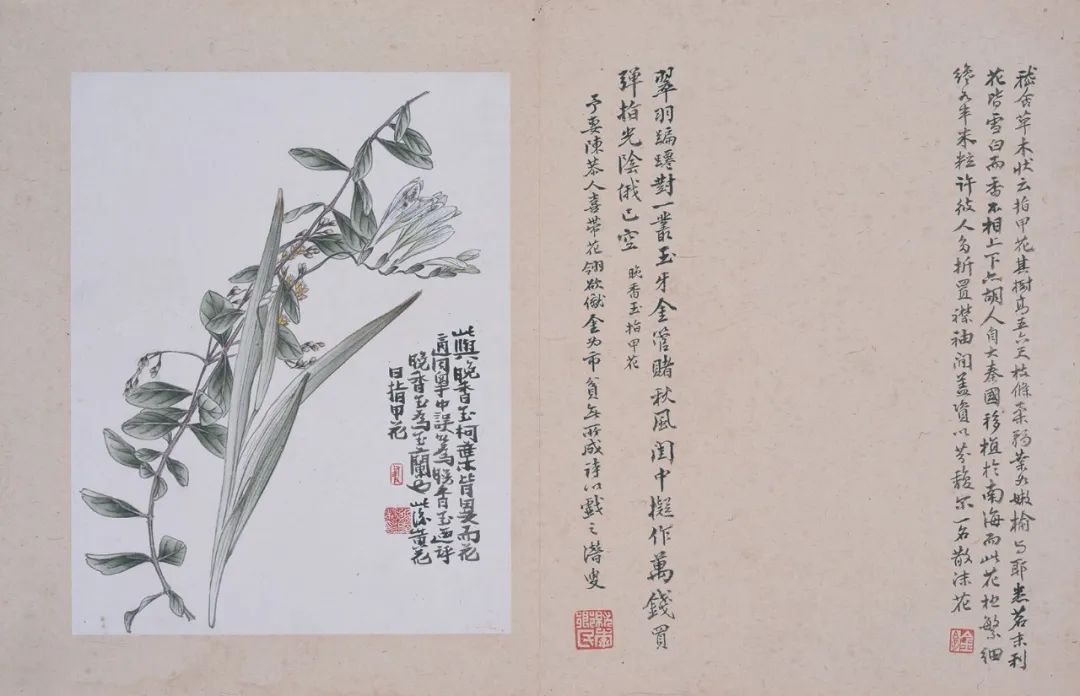 嵇含草木状云指甲花其樹高五六尺枝條柔弱葉如嫩榆与耶悉茗末利
花皆雪白而香不相上下亦胡人自大秦國移植於南海而此花極繁細
纔如半米粒許彼人多折置襟袖間盖資以芬馥尔一名散沫花
翠羽蹁躚對一叢玉牙金管賭秋風閨中擬作萬錢買
彈指光陰俄已空
晚香玉指甲花
予妻陳恭人喜帶花欲金為市貧無所成詩以戲之潛叟
此與晚香玉柯葉皆異而花
同粤中誤以為晚香玉
晚香玉為玉蘭也此黄花
曰指甲花